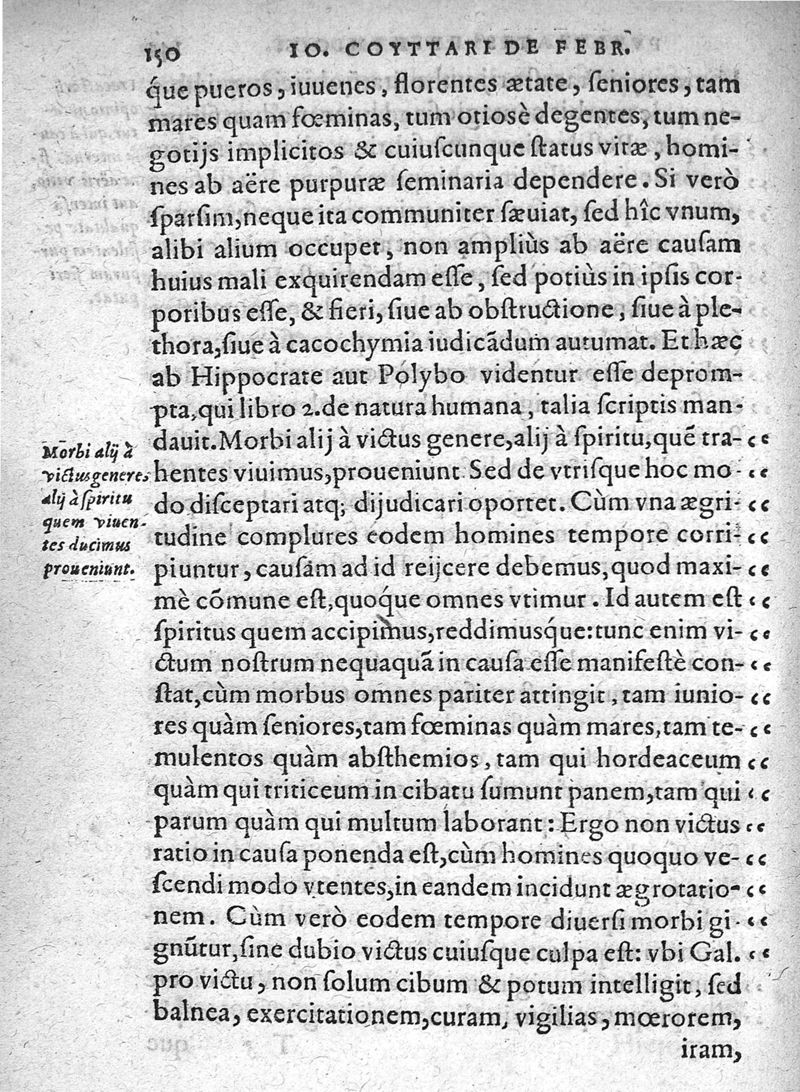 150 IO. COYTTARI DE FEBR.
q́ue pueros, iuuenes, florentes ætate, ſeniores, tam
mares quam fœminas, tum otiosè degentes, tum ne-
gotijs implicitos & cuiuſcunque ſtatus vitæ, homi-
nes ab aëre purpuræ ſeminaria dependere. Si verò
ſparſim, neque ita communiter ſæuiat, ſed hîc vnum,
alibi alium occupet, non ampliùs ab aëre cauſam
huius mali exquirendam eſſe, ſed potiùs in ipſis cor-
poribus eſſe, & fieri, ſiue ab obſtructione, ſiue à ple-
thora, ſiue à cacochymia iudicãdum autumat. Et hæc
ab Hippocrate aut Polybo videntur eſſe deprom-
pta, qui libro 2. de natura humana, talia ſcriptis man-
dauit. Morbi alij à victus genere, alij à ſpiritu, quẽ tra-
hentes viuimus, proueniunt. Sed de vtriſque hoc mo-
do diſceptari atq; dijudicari oportet. Cùm vna ægri-
tudine complures eodem homines tempore corri-
piuntur, cauſam ad id reijcere debemus, quod maxi-
mè cõmune eſt, quoq́ue omnes vtimur. Id autem eſt
ſpiritus quem accipimus, reddimusq́ue: tunc enim vi-
ctum noſtrum nequaquã in cauſa eſſe manifeſtè con-
ſtat, cùm morbus omnes pariter attingit, tam iunio-
res quàm ſeniores, tam fœminas quàm mares, tam te-
mulentos quàm abſthemios, tam qui hordeaceum
quàm qui triticeum in cibatu ſumunt panem, tam qui
parum quàm qui multum laborant: Ergo non victus
ratio in cauſa ponenda eſt, cùm homines quoquo ve-
ſcendi modo vtentes, in eandem incidunt ægrotatio-
nem. Cùm verò eodem tempore diuerſi morbi gi-
gnũtur, ſine dubio victus cuiuſque culpa eſt: vbi Gal.
pro victu, non ſolum cibum & potum intelligit, ſed
balnea, exercitationem, curam, vigilias, mœrorem,
iram,
Morbi alij à
victus genere,
alij à ſpiritu
quem viuen-
tes ducimus
proueniunt.